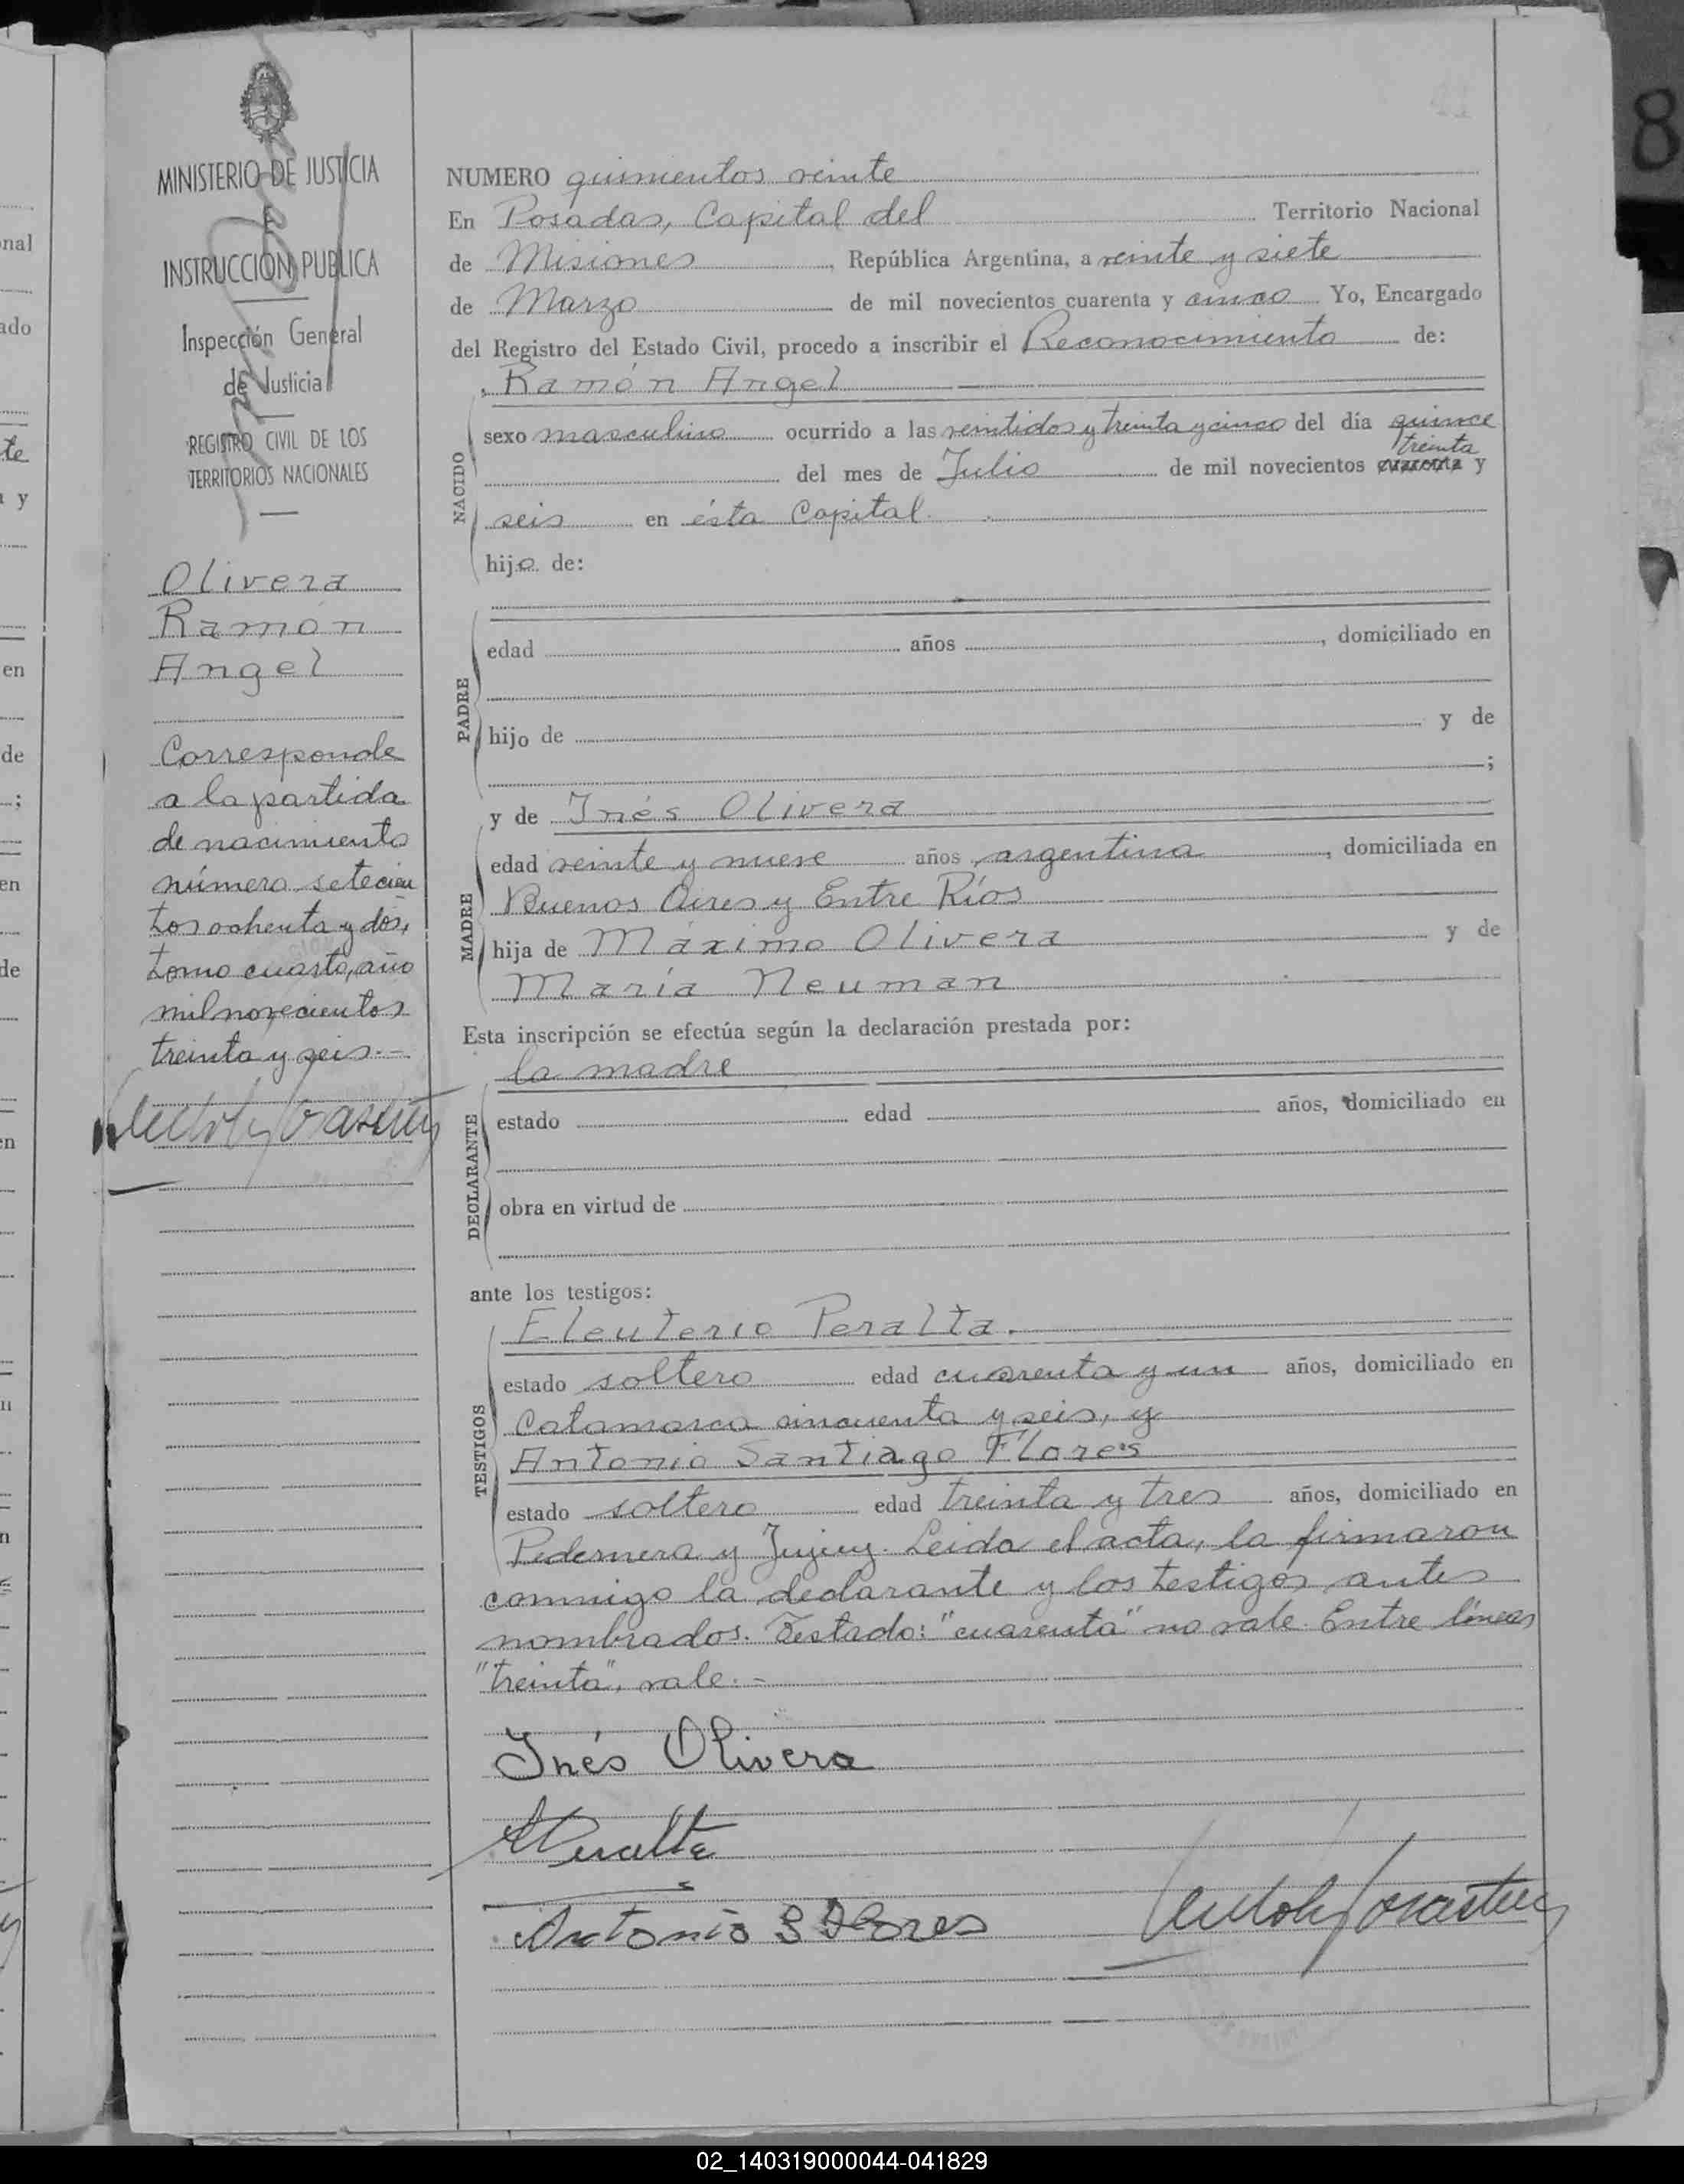 MINISTERIO DE JUSTICIA
E
INSTRUCCION PUBLICA
Inspección General
de Justicia
REGISTRO CIVIL DE LOS
TERRITORIOS NACIONALES
Olivera
Ramón
Angel
Corresponde
a la partida
de nacimiento
número setecien
tos ochenta y dos,
tomo cuarto, año
mil novecientos
treinta y seis.-
NUMERO quinientos veinte
En Posadas, Capital del Territorio Nacional
de Misiones, República Argentina, a veinte y siete
de Marzo de mil novecientos cuarenta y cinco Yo, Encargado
del Registro del Estado Civil, procedo a inscribir el Reconocimiento de:
Ramón Angel
NACIDO
sexo masculino ocurrido a las veintidos y treinta y cinco del día quince
treinta
del mes de Julio de mil novecientos cuarenta y
seis en ésta Capital.
hijo de:
PADRE
edad años , domiciliado en
hijo de y de
;
MADRE
y de Inés Olivera
edad veinte y nueve años argentina, domiciliada en
Buenos Aires y Entre Ríos
hija de Máximo Olivera y de
María Neuman
Esta inscripción se efectúa según la declaración prestada por:
la madre
DECLARANTE
estado edad años, domiciliado en
obra en virtud de
ante los testigos:
TESTIGOS
Eleuterio Peralta.
estado soltero edad cuarenta y un años, domiciliado en
Catamarca cincuenta y seis, y
Antonio Santiago Flores
estado soltero edad treinta y tres años, domiciliado en
Pedernera y Jujuy. Leida el acta, la firmaron
conmigo la declarante y los testigos antes
nombrados. Testado: "cuarenta" no vale. Entre líneas
"treinta", vale.-
Inés Olivera
Peralta
Antonio S Flores
8
02_140319000044-041829